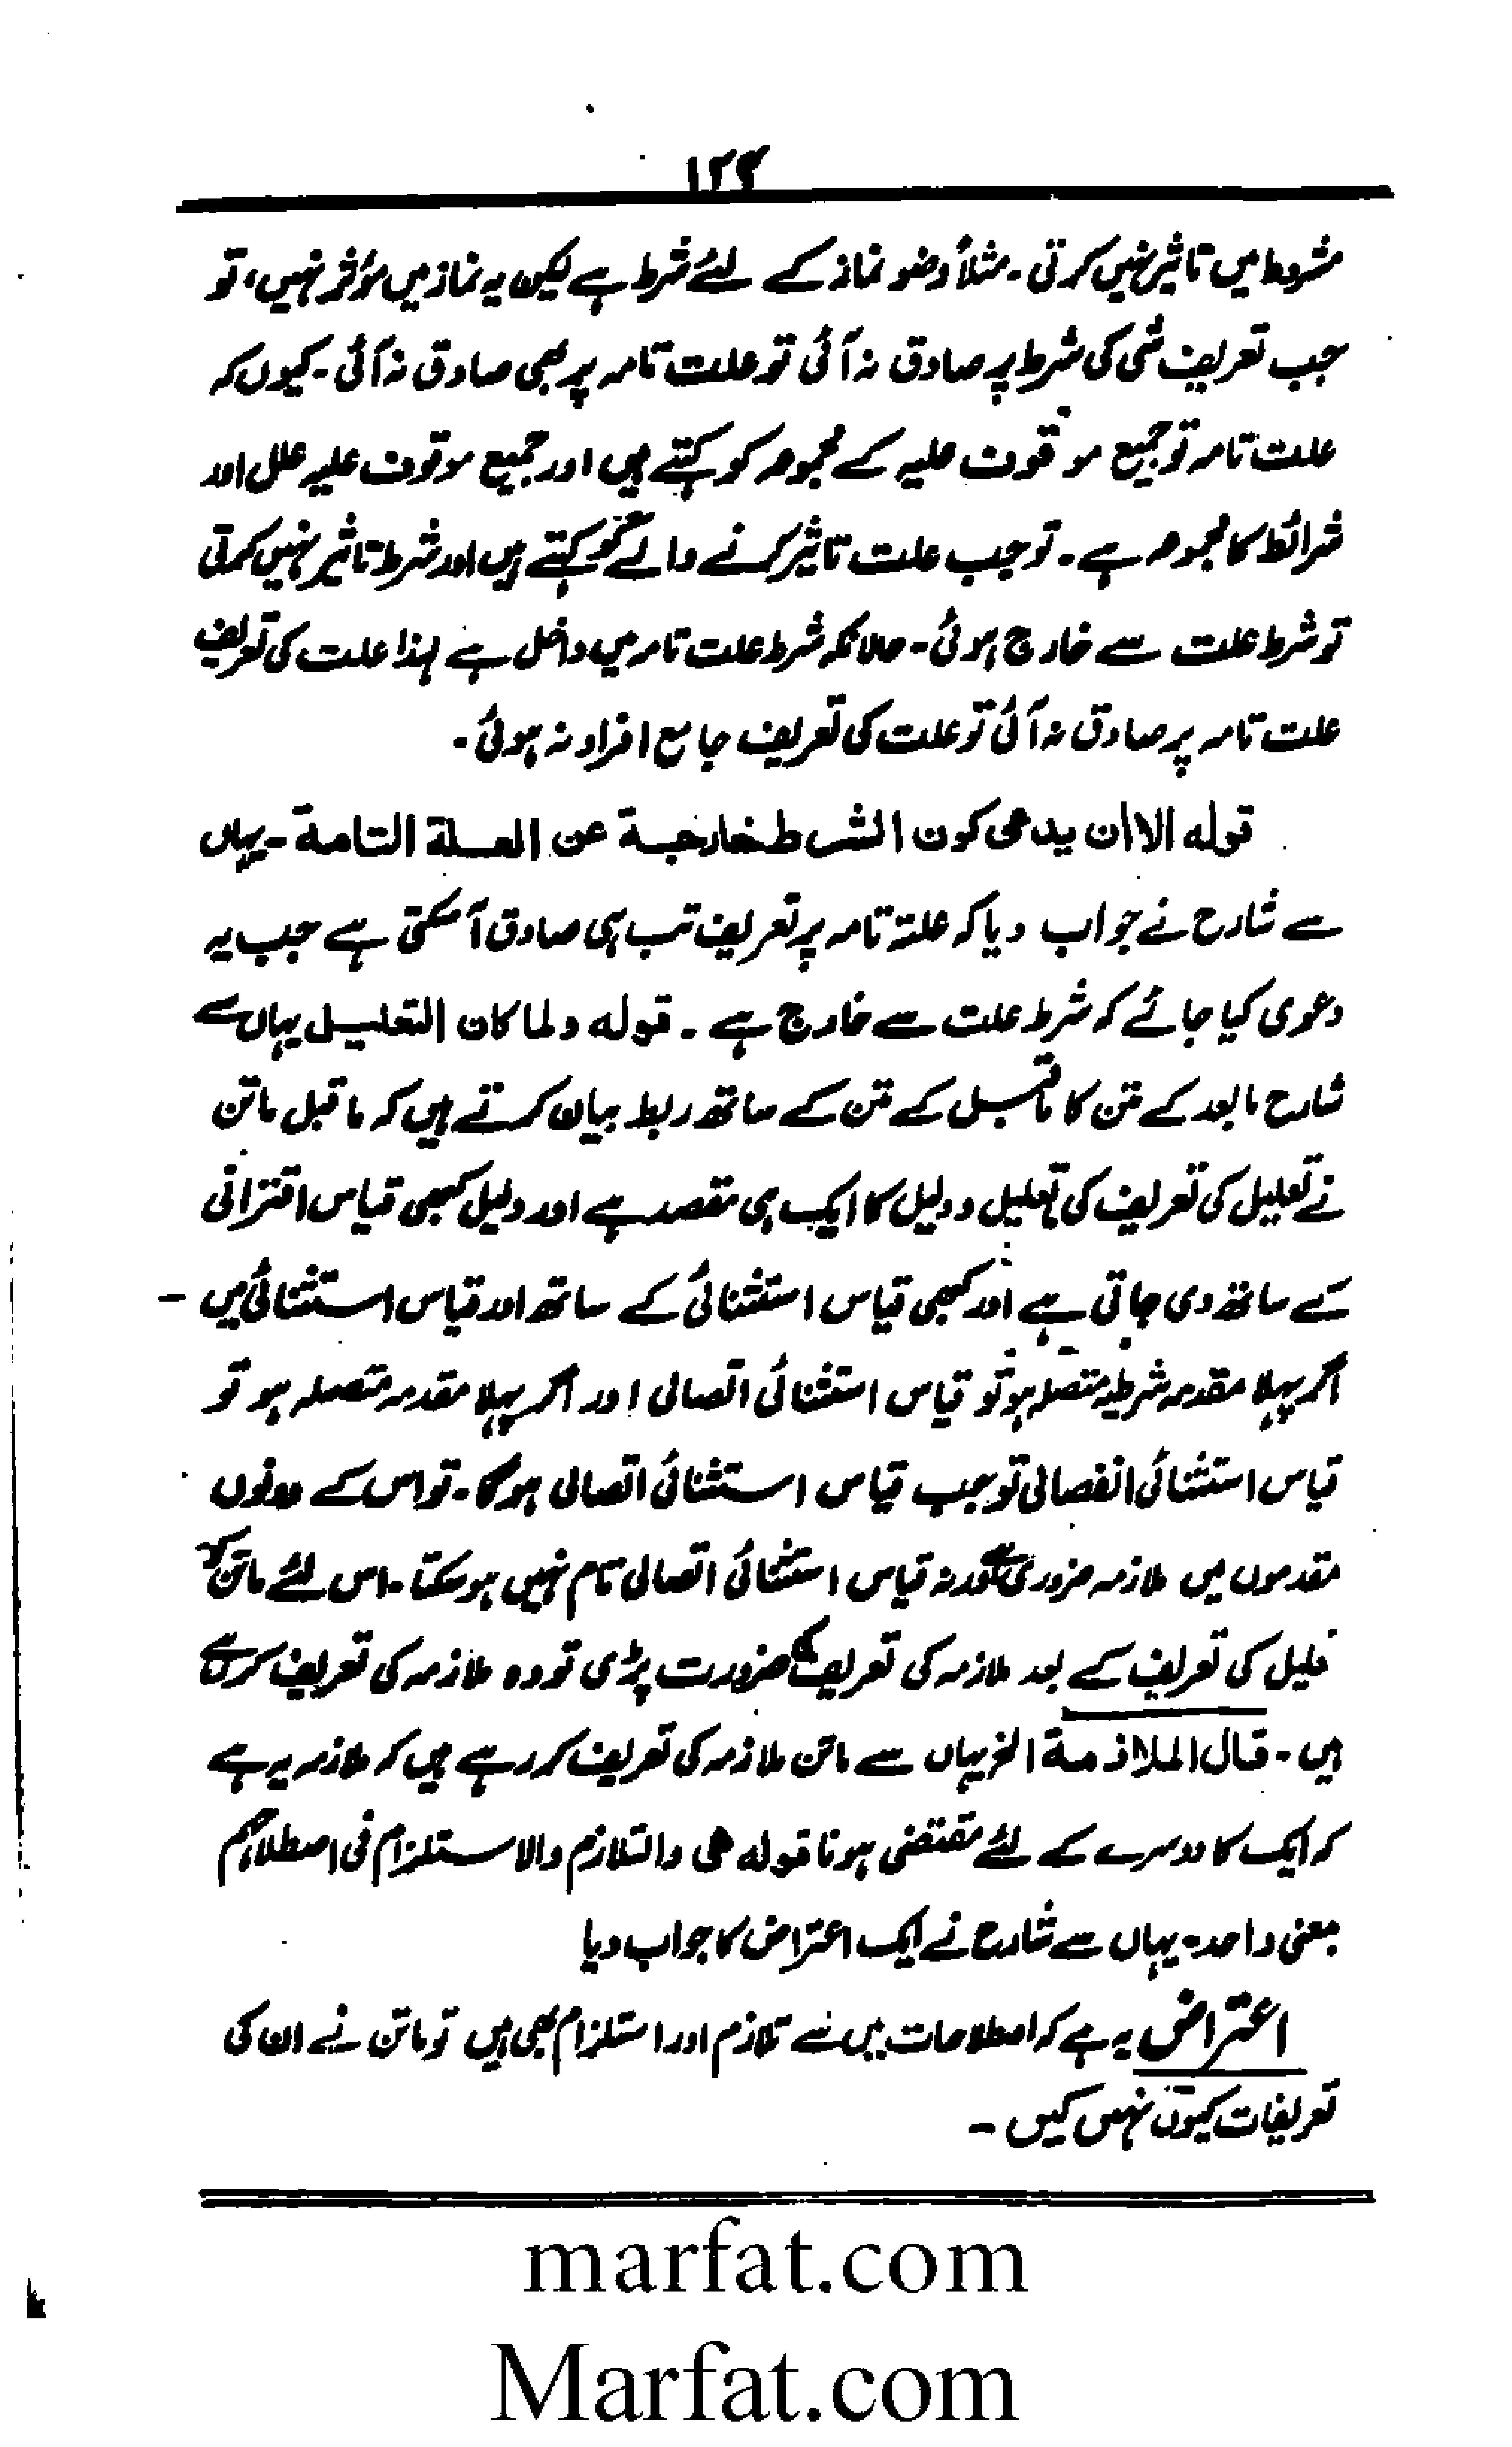 ۱۲۴
مشروط میں تاثیر نہیں کرتی ۔ مثلاً وضو نماز کے لئے شرط ہے لیکن یہ نماز میں مؤثر نہیں، تو
جب تعریف شئی کی شرط پر صادق نہ آئی تو علت تامہ پر بھی صادق نہ آئی ۔ کیوں کہ
علت تامہ تو جمیع موقوف علیہ کے مجموعہ کو کہتے ہیں اور جمیع موقوف علیہ علل اور
شرائط کا مجموعہ ہے ۔ تو جب علت تاثیر کرنے والے کو کہتے ہیں اور شرط تاثیر نہیں کرتی
تو شرط علت سے خارج ہوئی ۔ حالانکہ شرط علت تامہ میں داخل ہے لہذا علت کی تعریف
علت تامہ پر صادق نہ آئی تو علت کی تعریف جامع افراد نہ ہوئی ۔
قوله الا ان یدعی کون الشرط خارجة عن العلة التامة ۔ یہاں
سے شارح نے جواب دیا کہ علۃ تامہ پر تعریف تب ہی صادق آ سکتی ہے جب یہ
دعوی کیا جائے کہ شرط علت سے خارج ہے ۔ قولہ ولما کان التعلیل یہاں سے
شارح مابعد کے متن کا ماقبل کے متن کے ساتھ ربط بیان کرتے ہیں کہ ماقبل ماتن
نے تعلیل کی تعریف کی تعلیل و دلیل کا ایک ہی مقصد ہے اور دلیل کبھی قیاس اقترانی
کے ساتھ دی جاتی ہے اور کبھی قیاس استثنائی کے ساتھ اور قیاس استثنائی میں ۔
اگر پہلا مقدمہ شرطیہ متصلہ ہو تو قیاس استثنائی اتصالی اور اگر پہلا مقدمہ متصلہ ہو تو
قیاس استثنائی انفصالی تو جب قیاس استثنائی اتصالی ہوگا ۔ تو اس کے دونوں
مقدموں میں ملازمہ ضروری ہے ورنہ قیاس استثنائی اتصالی تام نہیں ہو سکتا ۔ اس لئے ماتن کو
دلیل کی تعریف کے بعد ملازمہ کی تعریف کی ضرورت پڑی تو وہ ملازمہ کی تعریف کر رہے
ہیں ۔ قال الملازمة الخ یہاں سے ماتن ملازمہ کی تعریف کر رہے ہیں کہ ملازمہ یہ ہے
کہ ایک کا دوسرے کے لئے مقتضی ہونا قولہ ھی والتلازم والاستلزام فی اصطلاحہم
بمعنی واحد ۔ یہاں سے شارح نے ایک اعتراض کا جواب دیا
اعتراض یہ ہے کہ اصطلاحات میں سے تلازم اور استلزام بھی ہیں تو ماتن نے ان کی
تعریفات کیوں نہیں کیں ۔
marfat.com
Marfat.com